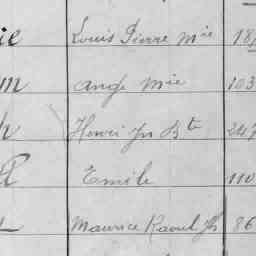 ie Louis Pierre Mie 18
m Ange Mie 103
h Henri Jn Bte 247
Emile 110
Maurice Raoul Jh 86